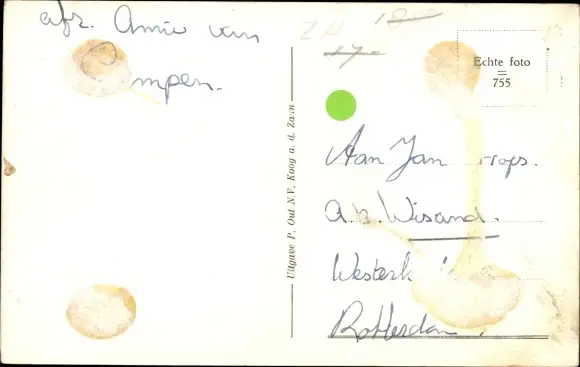 afz. Annie van
Z H 18
17
Echte foto
=
755
Uitgave P. Out N.V. Koog a. d. Zaan
Aan Jan
a.b. Wisand.
Rotterdam